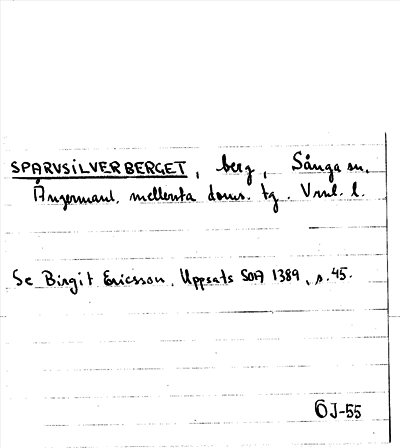 SPARVSILVERBERGET, berg, Sånga sn.
Ångermanl. mellersta doms. tg. Vnl. l.
Se Birgit Ericsson, Uppsats SOA 1389, s. 45.
ÖJ-55